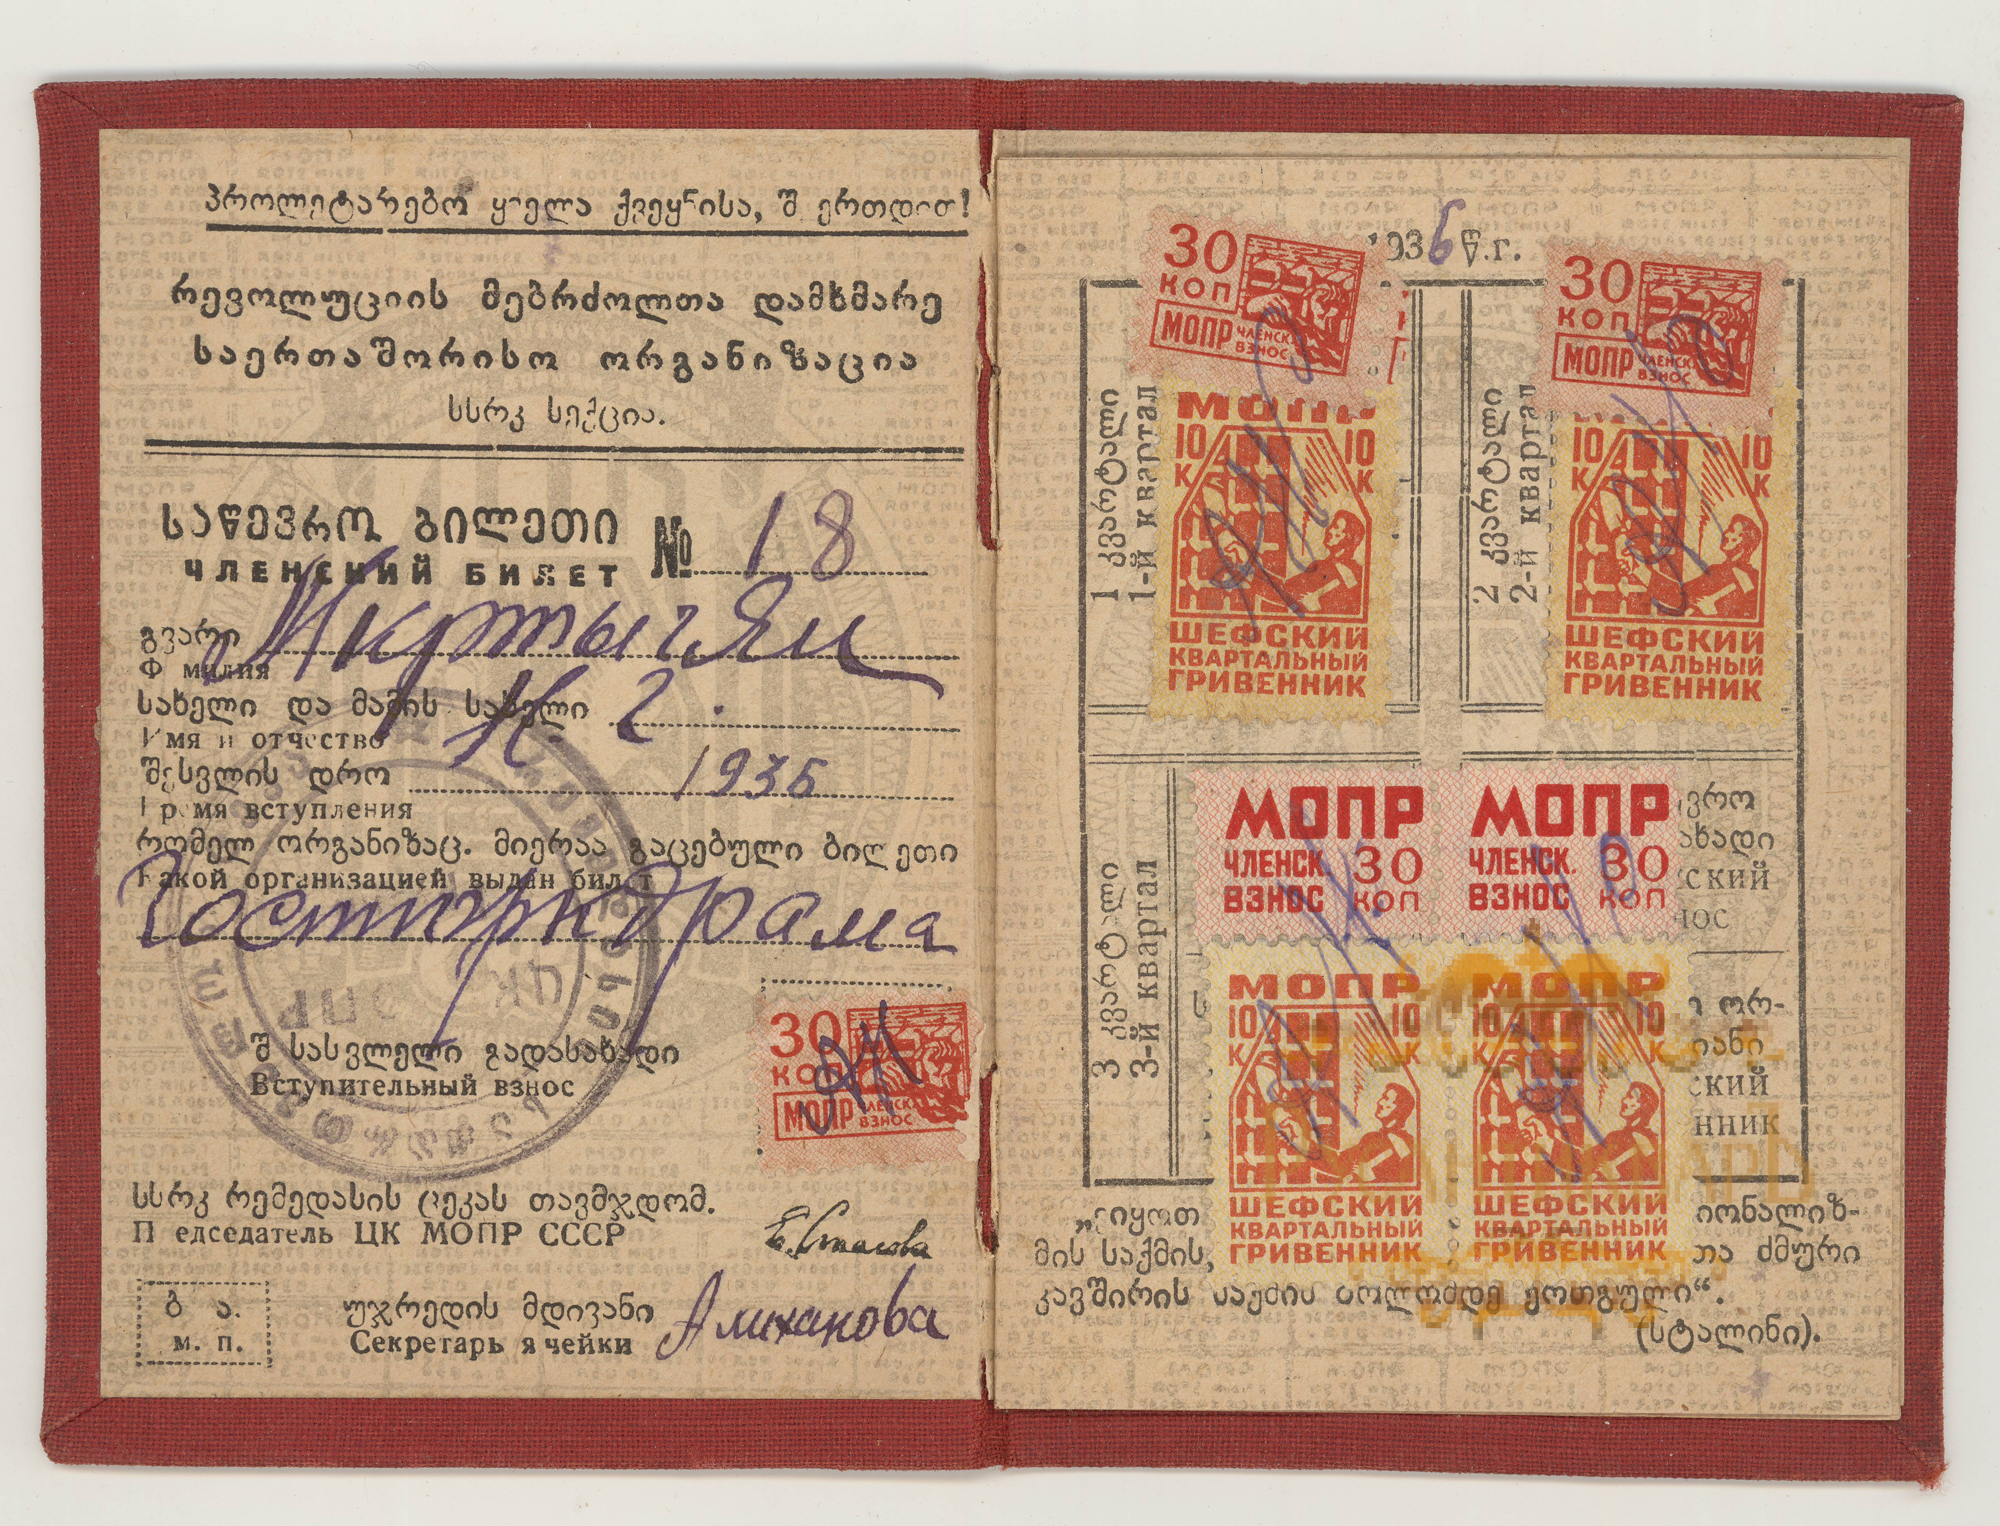 პროლეტარებო ყველა ქვეყნისა, შ ერთდით!
რევოლუციის მებრძოლთა დამხმარე
საერთაშორისო ორგანიზაცია
სსრკ სექცია.
საწევრო ბილეთი № 18
ЧЛЕНСКИЙ БИЛЕТ
გვარი Мкртычян
Ф милия
სახელი და მამის სახელი Н. Г.
Имя и отчество
შესვლის დრო 1936
Время вступления
რომელ ორგანიზაც. მიერაა გაცემული ბილეთი
Какой организацией выдан билет
Гостюркдрама
შ სასვლელი გადასახადი
Вступительный взнос
30
КОП
МОПР ЧЛЕНСК. ВЗНОС
სსრკ რემედასის ცეკას თავმჯდომ.
П едседатель ЦК МОПР СССР
Е. Стасова
ბ ა.
м. п.
უჯრედის მდივანი
Секретарь ячейки
Алиханова
1936 წ.г.
30
КОП
МОПР ЧЛЕНСК. ВЗНОС
30
КОП
МОПР ЧЛЕНСК. ВЗНОС
1 კვარტალი
1-й квартал
МОПР
10 К 10 К
ШЕФСКИЙ
КВАРТАЛЬНЫЙ
ГРИВЕННИК
2 კვარტალი
2-й квартал
10 К 10 К
ШЕФСКИЙ
КВАРТАЛЬНЫЙ
ГРИВЕННИК
3 კვარტალი
3-й квартал
МОПР
ЧЛЕНСК. 30
ВЗНОС КОП
МОПР
ЧЛЕНСК. 30
ВЗНОС КОП
ვრო
ახადი
ский
нос
МОПР
10 К 10 К
ШЕФСКИЙ
КВАРТАЛЬНЫЙ
ГРИВЕННИК
МОПР
10 К 10 К
ШЕФСКИЙ
КВАРТАЛЬНЫЙ
ГРИВЕННИК
ი ორ-
იანი
ский
нник
იყოთ იონალიზ-
მის საქმის, თა ძმური
კავშირის საქმის ბოლომდე ერთგული“.
(სტალინი).